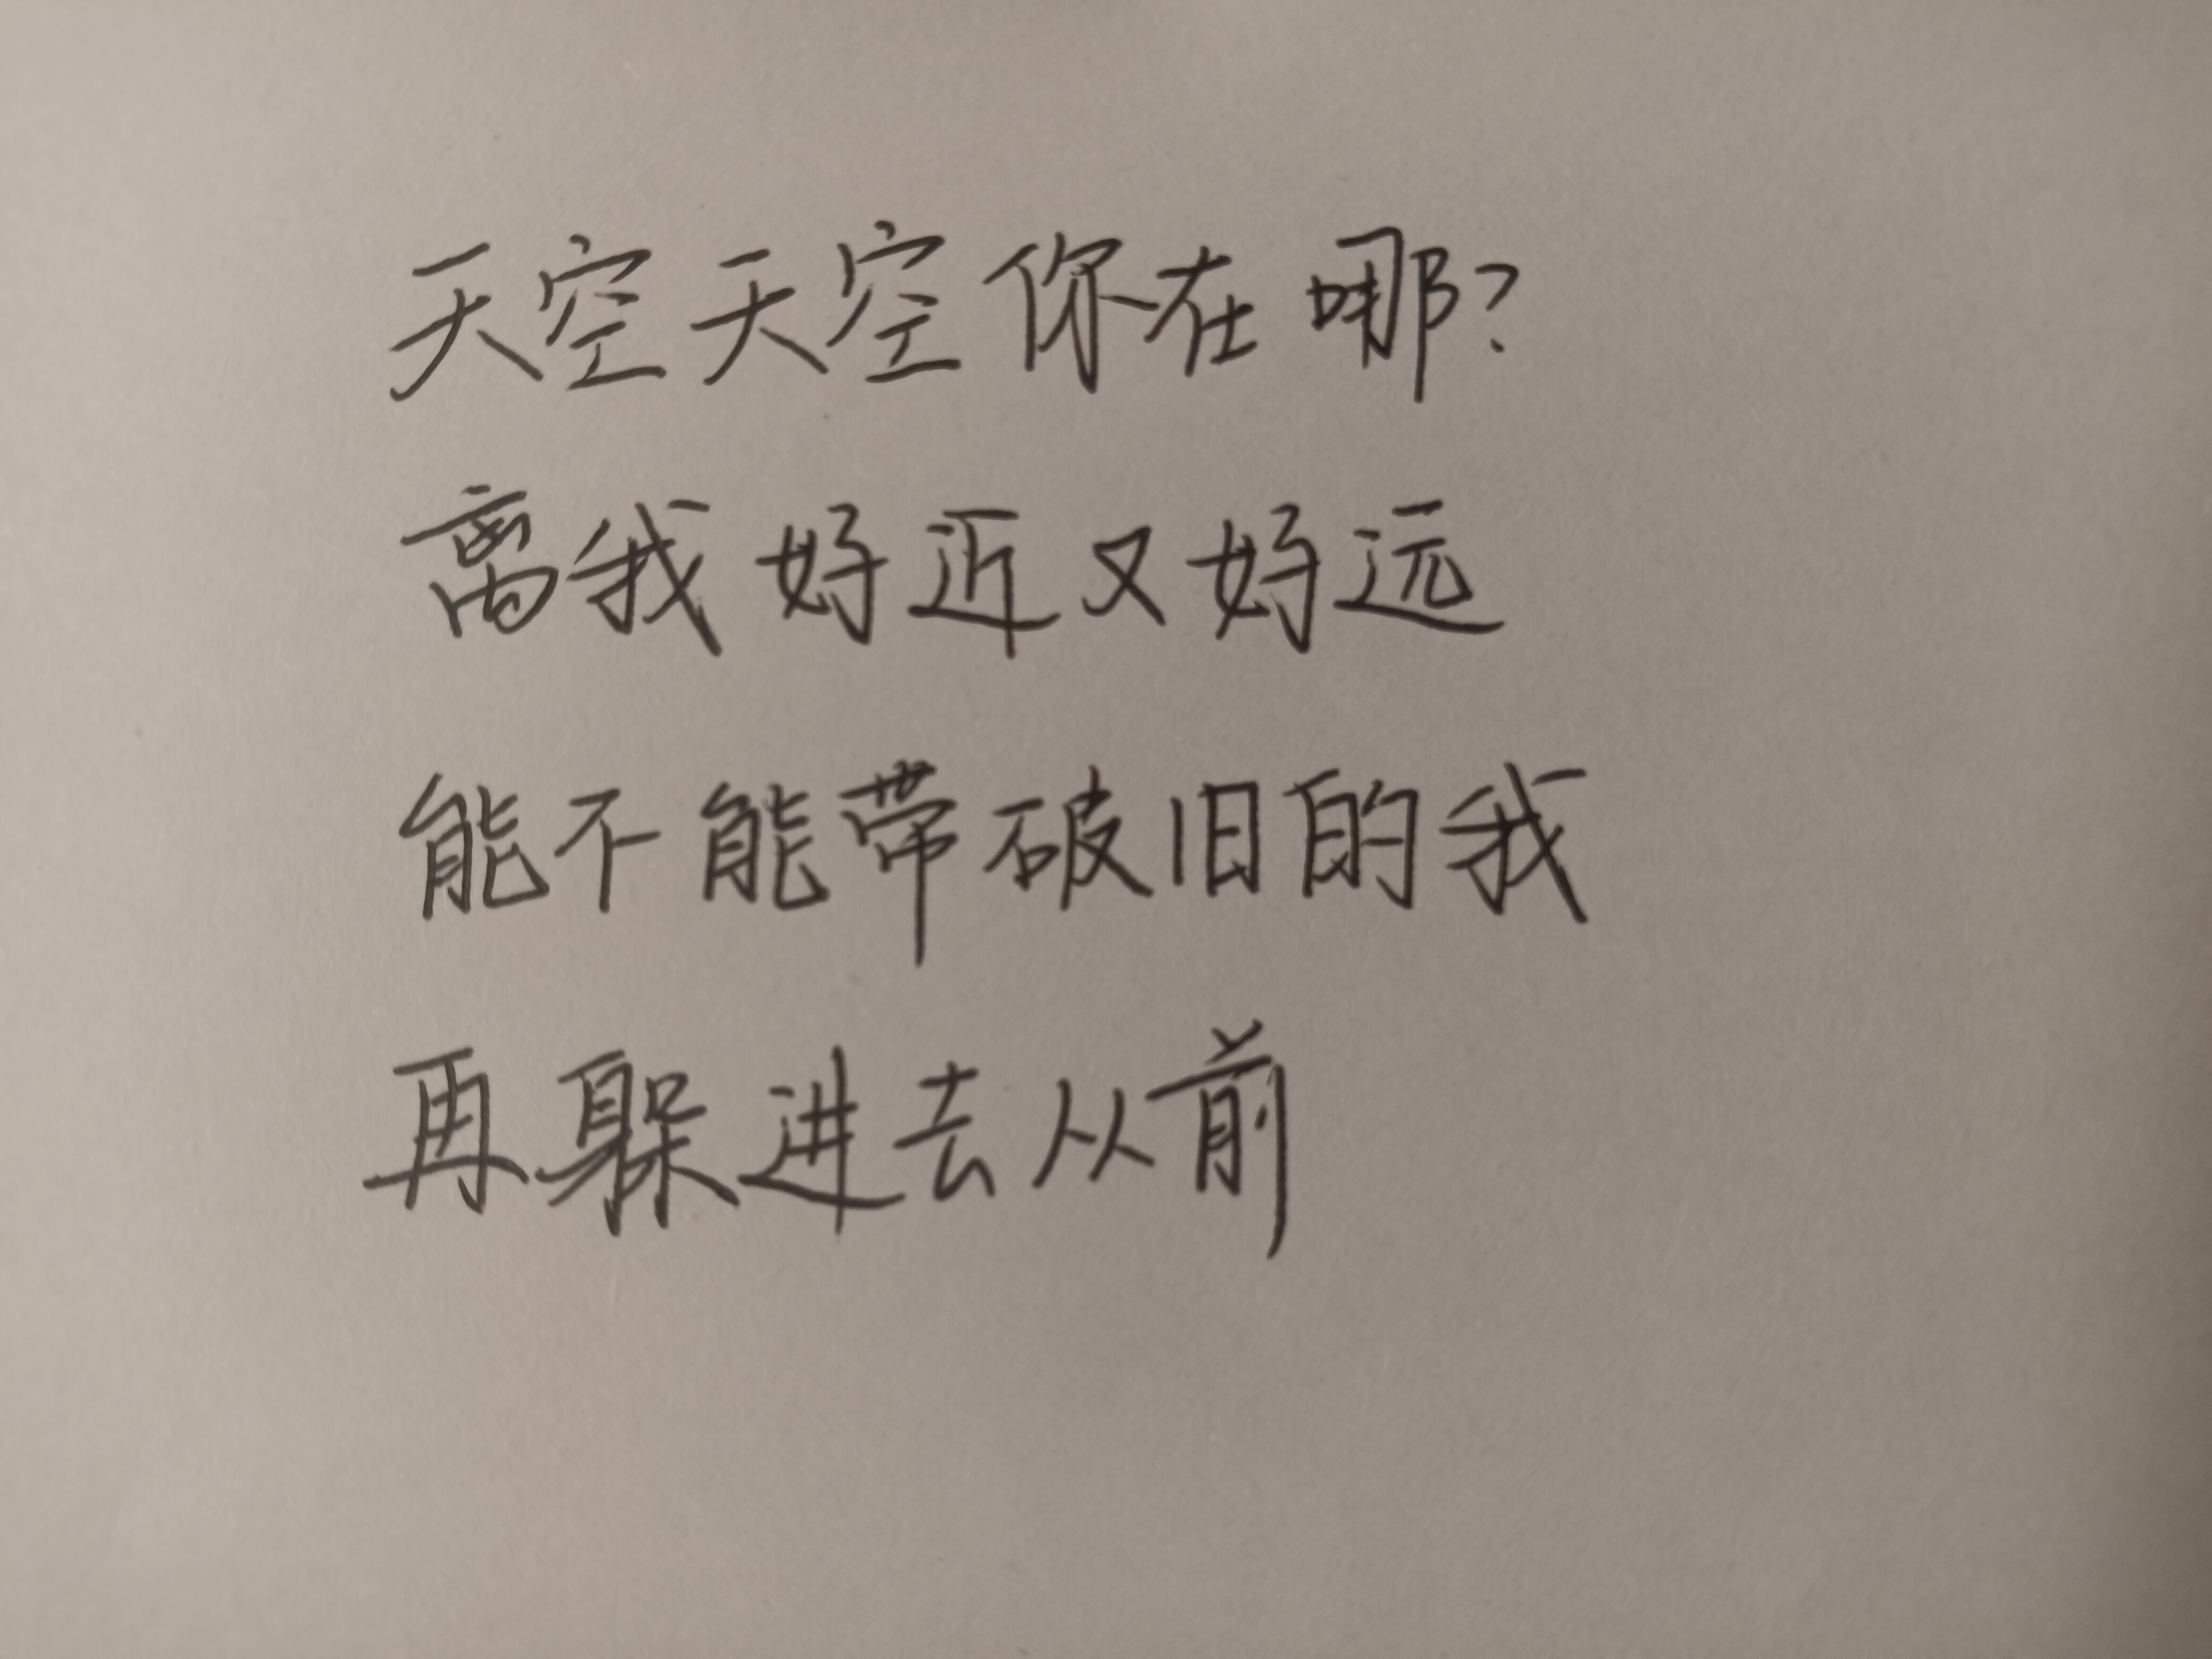 天空天空你在哪?
离我好近又好远
能不能带破旧的我
再躲进去从前